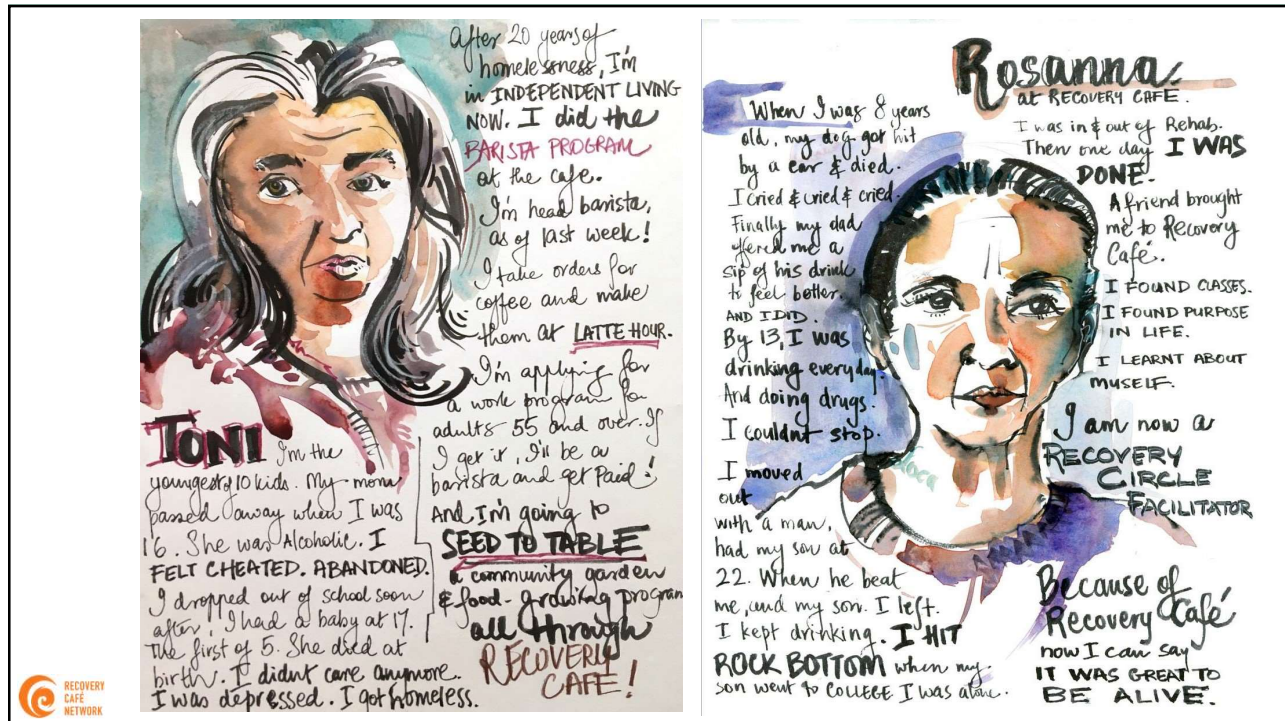 TONI I'm the
youngest of 10 kids. My mom
passed away when I was
16. She was Alcoholic. I
FELT CHEATED. ABANDONED.
I dropped out of school soon
after, I had a baby at 17.
The first of 5. She died at
birth. I didn't care anymore.
I was depressed. I got homeless.
After 20 years of
homelessness, I'm
in INDEPENDENT LIVING
NOW. I did the
BARISTA PROGRAM
at the cafe.
I'm head barista,
as of last week!
I take orders for
coffee and make
them at LATTE HOUR.
I'm applying for
a work program for
adults 55 and over. If
I get it, I'll be a
barista and get Paid!
And I'm going to
SEED TO TABLE
a community garden
& food-growing program
all through
RECOVERY
CAFE!
Rosanna
at RECOVERY CAFE.
When I was 8 years
old, my dog got hit
by a car & died.
I cried & cried & cried.
Finally my dad
offered me a
sip of his drink
to feel better.
AND I DID.
By 13, I was
drinking everyday.
And doing drugs.
I couldnt stop.
I moved
out
with a man,
had my son at
22. When he beat
me, and my son. I left.
I kept drinking. I HIT
ROCK BOTTOM when my
son went to COLLEGE. I was alone.
I was in & out of Rehab.
Then one day I WAS
DONE.
A friend brought
me to Recovery
Café.
I FOUND CLASSES.
I FOUND PURPOSE
IN LIFE.
I LEARNT ABOUT
MYSELF.
I am now a
RECOVERY
CIRCLE
FACILITATOR
Because of
Recovery Café
now I can say
IT WAS GREAT TO
BE ALIVE.
RECOVERY
CAFÉ
NETWORK